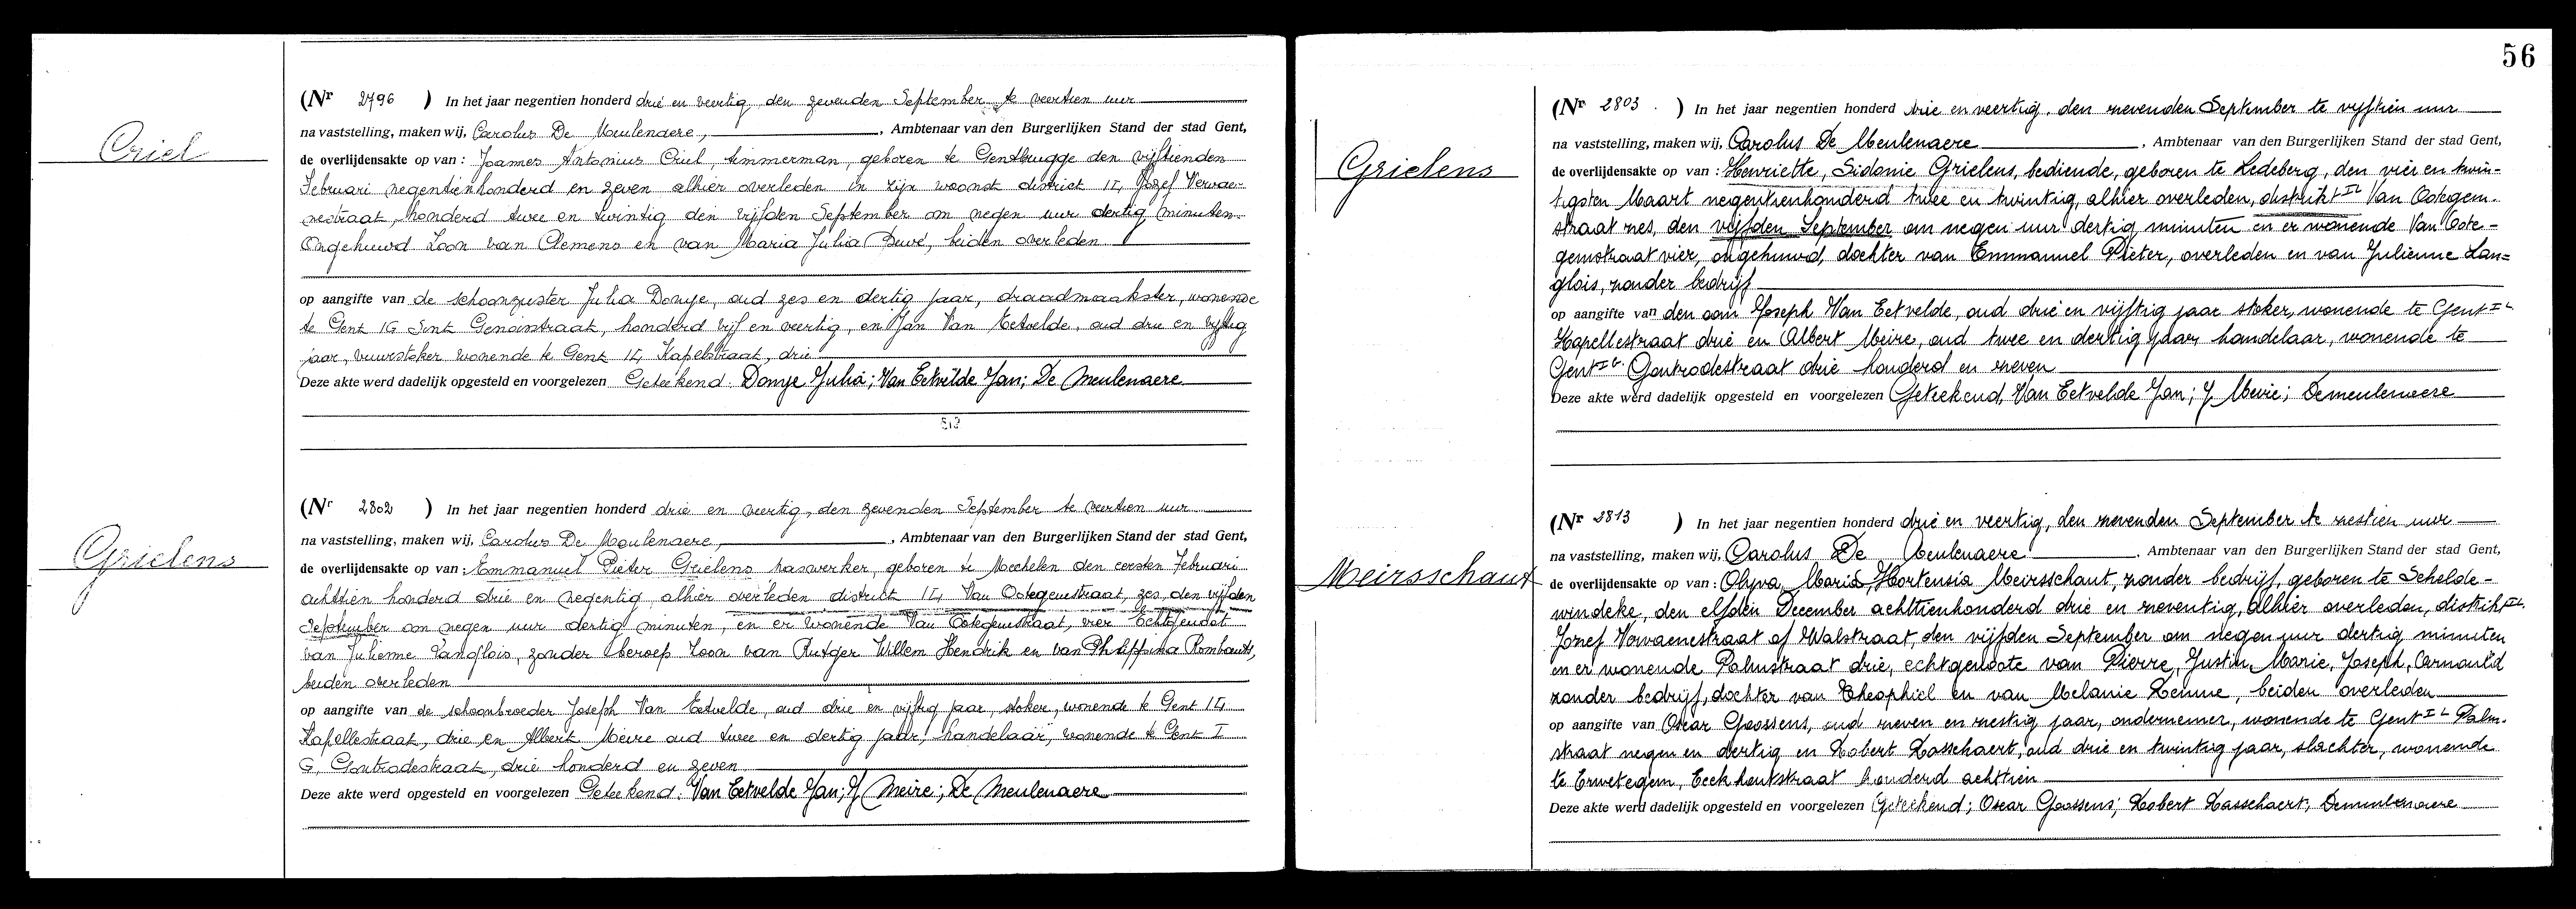 Criel
(Nr 2796 ) In het jaar negentien honderd drie en veertig, den zevenden September te veertien uur
na vaststelling, maken wij, Carolus De Meulenaere, , Ambtenaar van den Burgerlijken Stand der stad Gent,
de overlijdensakte op van : Joannes Antonius Criel, timmerman, geboren te Gentbrugge den vijftienden
Februari negentienhonderd en zeven alhier overleden in zijn woonst district IG, Jozef Vervae-
nestraat, honderd twee en twintig den vijfden September om negen uur dertig minuten.
Ongehuwd Zoon van Clemens en van Maria Julia Duvé, beiden overleden
op aangifte van de schoonzuster Julia Donye, oud zes en dertig jaar, draadmaakster, wonende
te Gent IG Sint Genoisstraat, honderd vijf en veertig, en Jan Van Eetvelde, oud drie en vijftig
jaar, vuurstoker wonende te Gent IG, Kapelstraat, drie
Deze akte werd dadelijk opgesteld en voorgelezen Geteekend: Donye Julia; Van Eetvelde Jan; De Meulenaere
513
Grielens
(Nr 2802 ) In het jaar negentien honderd drie en veertig, den zevenden September te veertien uur
na vaststelling, maken wij, Carolus De Meulenaere, , Ambtenaar van den Burgerlijken Stand der stad Gent,
de overlijdensakte op van : Emmanuel Pieter Grielens haswerker, geboren te Mechelen den eersten Februari
achttien honderd drie en negentig, alhier overleden district IG, Van Ootegemstraat, zes, den vijfden
September om negen uur dertig minuten, en er wonende Van Ootegemstraat, vier Echtgenoot
van Julienne Langlois, zonder beroep Zoon van Rutger Willem Hendrik en van Philippina Rombauts,
beiden overleden
op aangifte van de schoonbroeder Joseph Van Eetvelde, oud drie en vijftig jaar, stoker, wonende te Gent IG
Kapellestraat, drie en Albert Meire oud twee en dertig jaar, handelaar, wonende te Gent I
G, Gontrodestraat, drie honderd en zeven
Deze akte werd opgesteld en voorgelezen Geteekend: Van Eetvelde Jan; J Meire; De Meulenaere
56
Grielens
(Nr 2803 . ) In het jaar negentien honderd drie en veertig, den zevenden September te vijftien uur
na vaststelling, maken wij, Carolus De Meulenaere , Ambtenaar van den Burgerlijken Stand der stad Gent,
de overlijdensakte op van : Henriette, Sidonie Grielens, bediende, geboren te Ledeberg, den vier en twin-
tigsten Maart negentienhonderd twee en twintig, alhier overleden, distrikt IG Van Ootegem-
straat zes, den vijfden September om negen uur dertig minuten en er wonende Van Oote-
gemstraat vier, ongehuwd, dochter van Emmanuel Pieter, overleden en van Julienne Lan=
glois, zonder bedrijf
op aangifte van den oom Joseph Van Eetvelde, oud drie en vijftig jaar stoker, wonende te Gent IG
Kapellestraat drie en Albert Meire, oud twee en dertig jaar, handelaar, wonende te
Gent IG Gontrodestraat drie honderd en zeven
Deze akte werd dadelijk opgesteld en voorgelezen Geteekend, Van Eetvelde Jan; J Meire; Demeulenaere
Meirsschaut
(Nr 2813 ) In het jaar negentien honderd drie en veertig, den zevenden September te zestien uur
na vaststelling, maken wij, Carolus De Meulenaere , Ambtenaar van den Burgerlijken Stand der stad Gent,
de overlijdensakte op van : Olyva, Maria, Hortensia Meirsschaut, zonder bedrijf, geboren te Schelde-
windeke, den elfden December achttienhonderd drie en zeventig, alhier overleden, distrikt IG.
Jozef Vervaenestraat of Walstraat, den vijfden September om negen uur dertig minuten
en er wonende Palmstraat drie, echtgenoote van Pierre, Justin, Marie, Joseph, Carnauld
zonder bedrijf, dochter van Theophiel en van Melanie Lenne, beiden overleden
op aangifte van Oscar Goossens, oud zeven en zestig jaar, ondernemer, wonende te Gent IG Palm-
straat negen en dertig en Robert Rasschaert, oud drie en twintig jaar, slachter, wonende
te Erwetegem, Eeckhoutstraat honderd achttien
Deze akte werd dadelijk opgesteld en voorgelezen Geteekend; Oscar Goossens; Robert Rasschaert; Demeulenaere